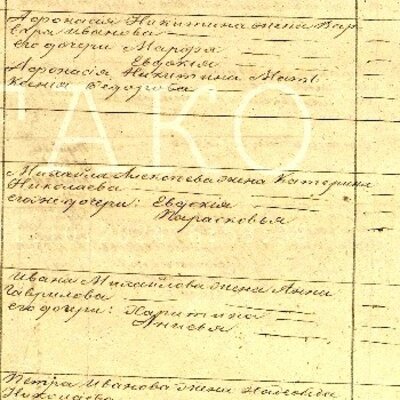 Афонасія Никитина жена Вар
вара Иванова
его дочери Марфа
Евдокия
Афонасія Никитина Мать
Ксенія Федорова
ГАКО
Михайла Алексеева жена Катерина
Николаева
его же дочери: Евдокия
Парасковья
Ивана Михайлова жена Анна
Гаврилова
его дочери: Харитина
Анисья
Петра Иванова жена Надежда
Николаева